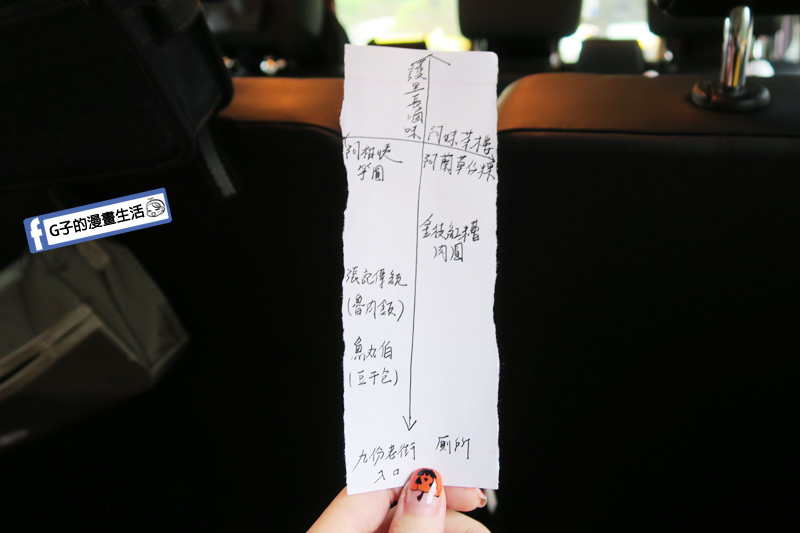 護里長滷味
阿味茶樓
阿柑姨
芋圓
阿蘭草仔粿
金枝紅糟
肉圓
張記傳統
(魯肉飯)
魚丸伯
(豆干包)
九份老街
入口
廁所
G子的漫畫生活